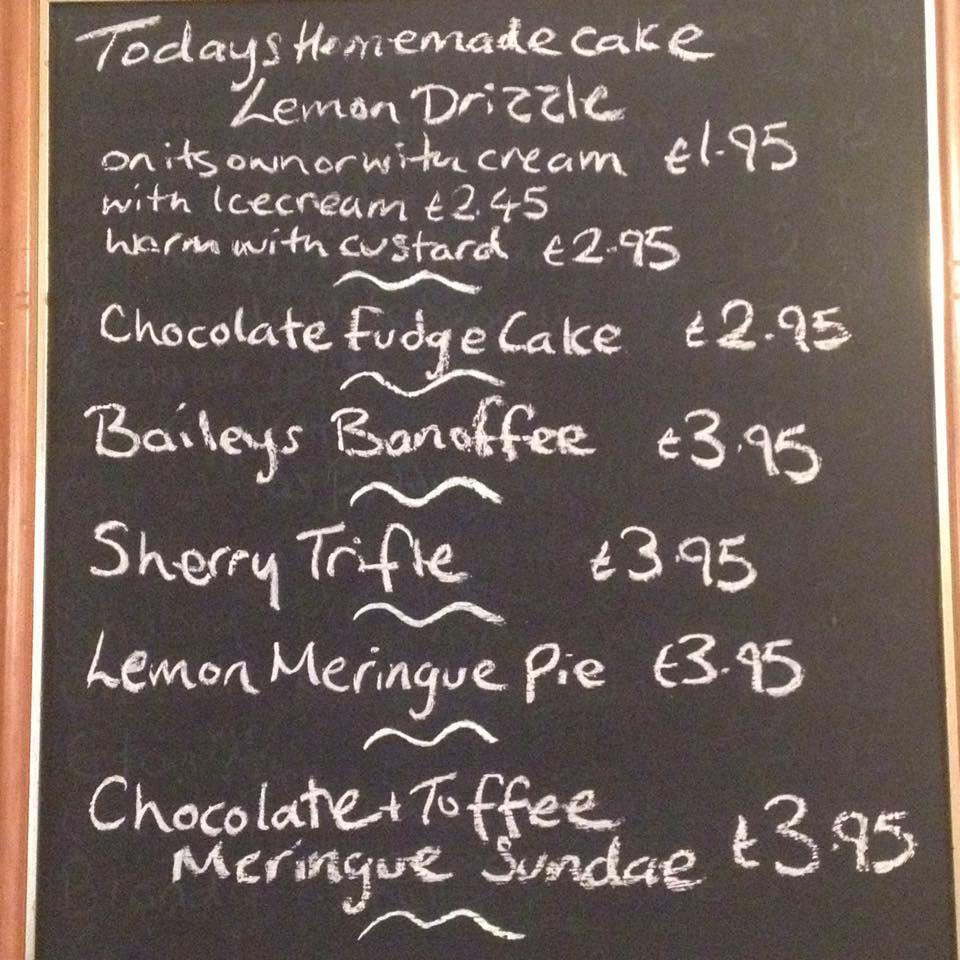 Todays Homemade cake
Lemon Drizzle
on its own or with cream £1.95
with Icecream £2.45
warm with custard £2.95
Chocolate Fudge Cake £2.95
Baileys Banoffee £3.95
Sherry Trifle £3.95
Lemon Meringue Pie £3.95
Chocolate + Toffee
Meringue Sundae £3.95